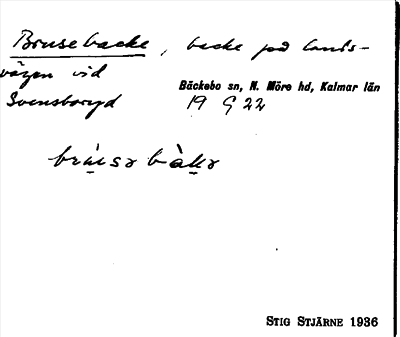 Brusebacke, backe på lands-
vägen vid
Bäckebo sn, N. Möre hd, Kalmar län
Svensboryd 19 G 22
STIG STJÄRNE 1936